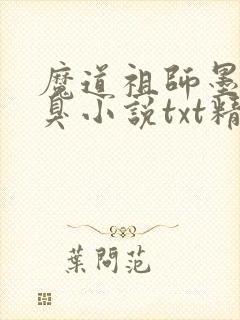 魔道祖師墨
臭小說txt精
葉問范